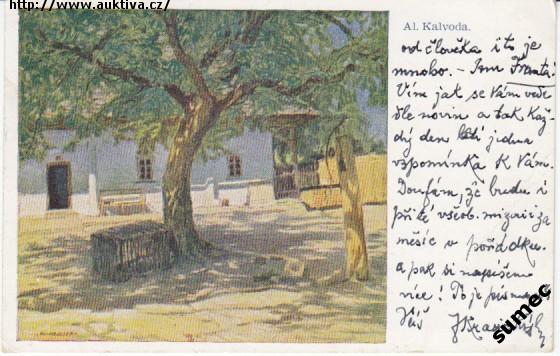 http://www.auktiva.cz/
Al. Kalvoda.
od člověka i to je
mnoho. – Jsem
Vím jak se Vám vede
dle novin a tak kaž-
dý den letí jedna
vzpomínka k Vám.
Doufám, že budu i
při té všeob. mizerii za
měsíc v pořádku.
a pak si napíšeme
více! To je
Váš
sumec